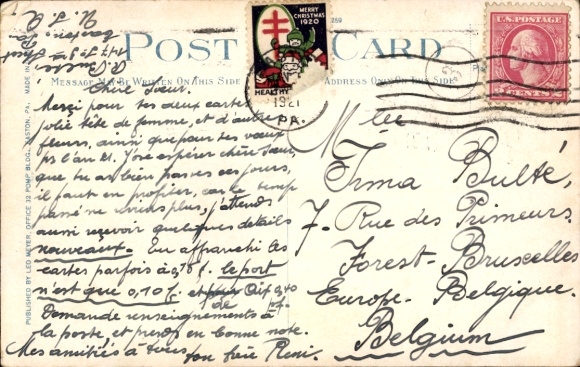 POST CARD
MESSAGE MAY BE WRITTEN ON THIS SIDE
ADDRESS ONLY ON THIS SIDE
259
MERRY
CHRISTMAS
1920
HEALTHY
1921
PA.
U.S. POSTAGE
CENTS
PUBLISHED BY LEO MEYER, OFFICE 32 POMP BLDG. EASTON, PA. MADE IN
Chère Soeur.
Merci pour tes deux cartes
jolie tête de femme, et d'autre
fleurs, ainsi que pour tes voeux
ps l'an 21. J'ose espérer chère Soeur,
que tu as bien passés ces jours,
il faut en profiter, car le temps
passé ne reviens plus, j'attends
aussi recevoir quelques détails
nouveaux. Tu affranchi les
cartes parfois à 0,15 f. le port
n'est que 0,10 f. et
Demande renseignements à
la poste, et prends en bonne note.
Mes amitiés à tous, ton frère Remi.
Mlle
Irma Bulté,
7-Rue des Primeurs.
Forest-Bruxelles
Europe-Belgique.
Belgium